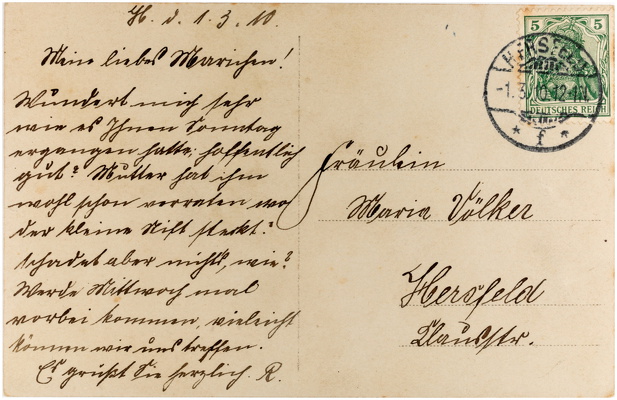 H. d. 1. 3. 10.
Mein liebes Mariechen!
Wundert mich sehr
wie es Ihnen Sonntag
ergangen hatte, hoffentlich
gut? Mutter hat ihm
wohl schon verraten wo
der kleine Stift steckt?
schadet aber nichts, wie?
Werde Mittwoch mal
vorbei kommen, vieleicht
können wir uns treffen.
Es grüßt Sie herzlich. R.
5 5
DEUTSCHES REICH
HERSFELD
-1.3.10.12-1N
* f *
Fräulein
Maria Völker
Hersfeld
Clausstr.